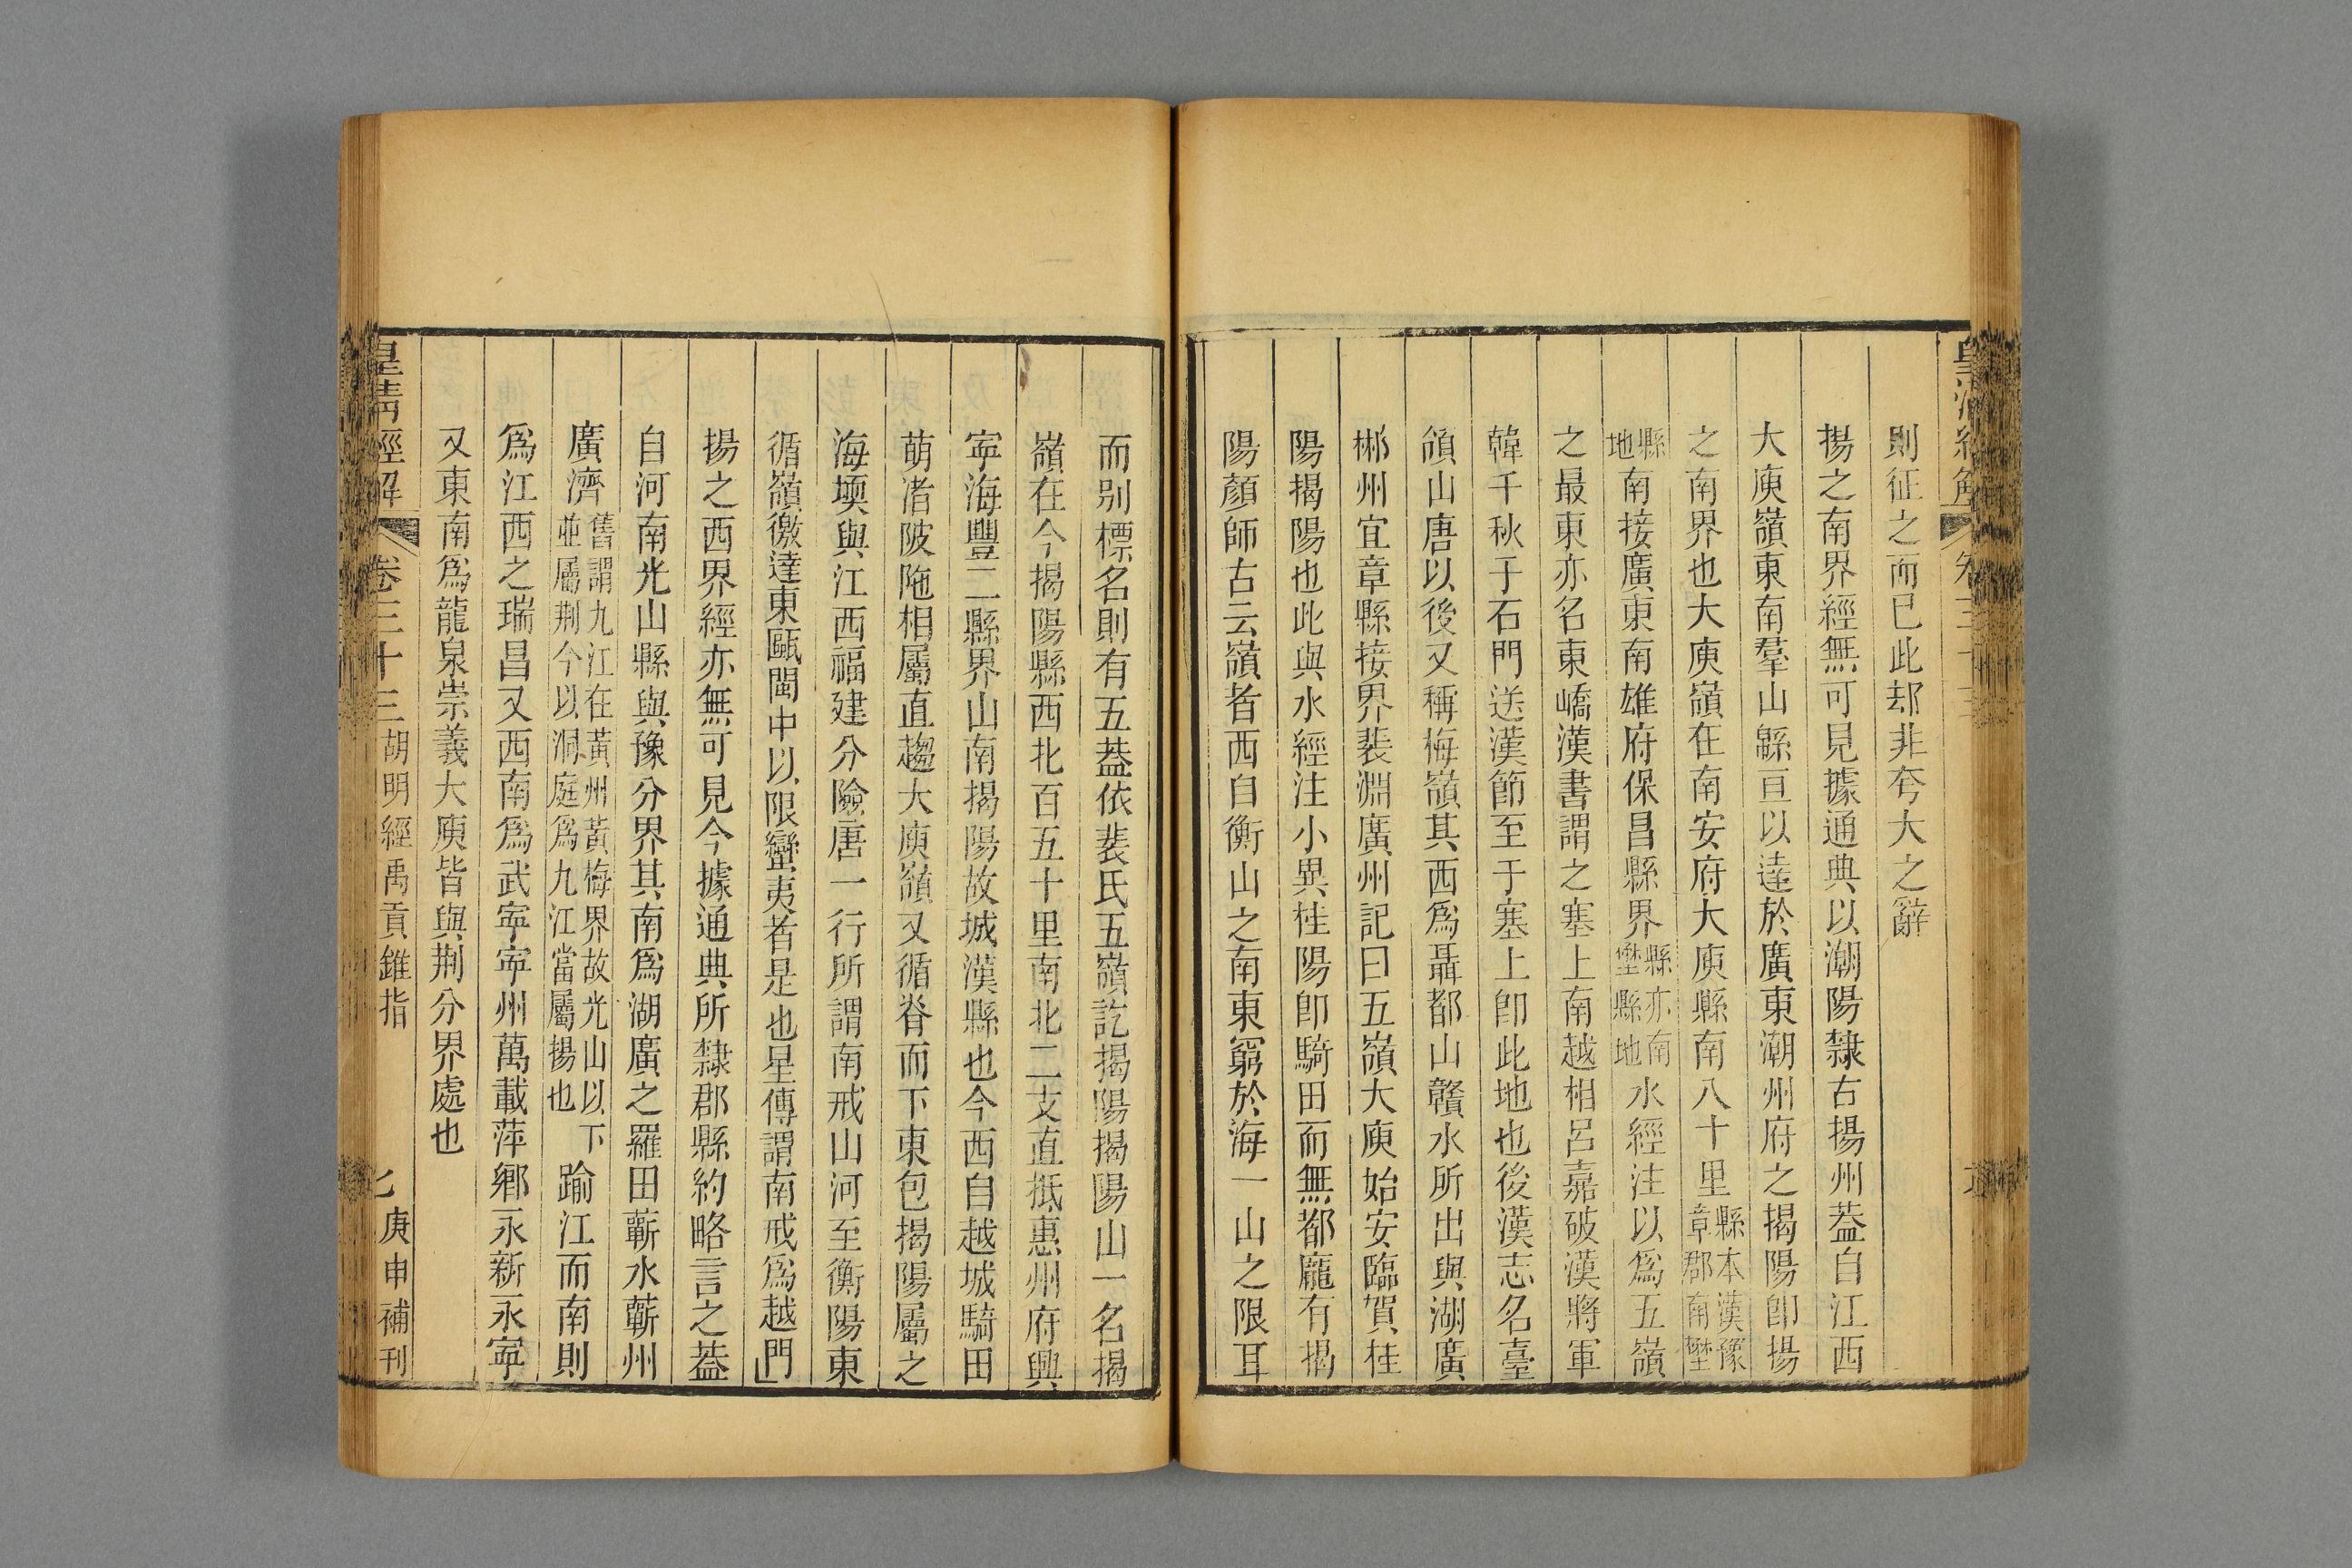 則征之而已此却非夸大之辭
揚之南界經無可見據通典以潮陽隸古揚州葢自江西
大庾嶺東南羣山緜亘以達於廣東潮州府之揭陽卽揚
之南界也大庾嶺在南安府大庾縣南八十里縣本漢豫章郡南壄
縣地南接廣東南雄府保昌縣界縣亦南壄縣地水經注以爲五嶺
之最東亦名東嶠漢書謂之塞上南越相呂嘉破漢將軍
韓千秋于石門送漢節至于塞上卽此地也後漢志名臺
領山唐以後又稱梅嶺其西爲聶都山贛水所出與湖廣
郴州宜章縣接界裴淵廣州記曰五嶺大庾始安臨賀桂
陽揭陽也此與水經注小異桂陽卽騎田而無都龐有揭
陽顏師古云嶺者西自衡山之南東窮於海一山之限耳
而別標名則有五葢依裴氏五嶺訖揭陽揭陽山一名揭
嶺在今揭陽縣西北百五十里南北二支直抵惠州府興
寧海豐二縣界山南揭陽故城漢縣也今西自越城騎田
萌渚陂陁相屬直趨大庾嶺又循脊而下東包揭陽屬之
海壖與江西福建分險唐一行所謂南戒山河至衡陽東
循嶺徼達東甌閩中以限蠻夷者是也星傳謂南戒爲越門
揚之西界經亦無可見今據通典所隸郡縣約略言之葢
自河南光山縣與豫分界其南爲湖廣之羅田蘄水蘄州
廣濟舊謂九江在黃州黃梅界故光山以下並屬荆今以洞庭爲九江當屬揚也踰江而南則
爲江西之瑞昌又西南爲武寧寧州萬載萍鄉永新永寧
又東南爲龍泉崇義大庾皆與荆分界處也
皇清經解 卷三十三胡明經禹貢錐指 庚申補刊